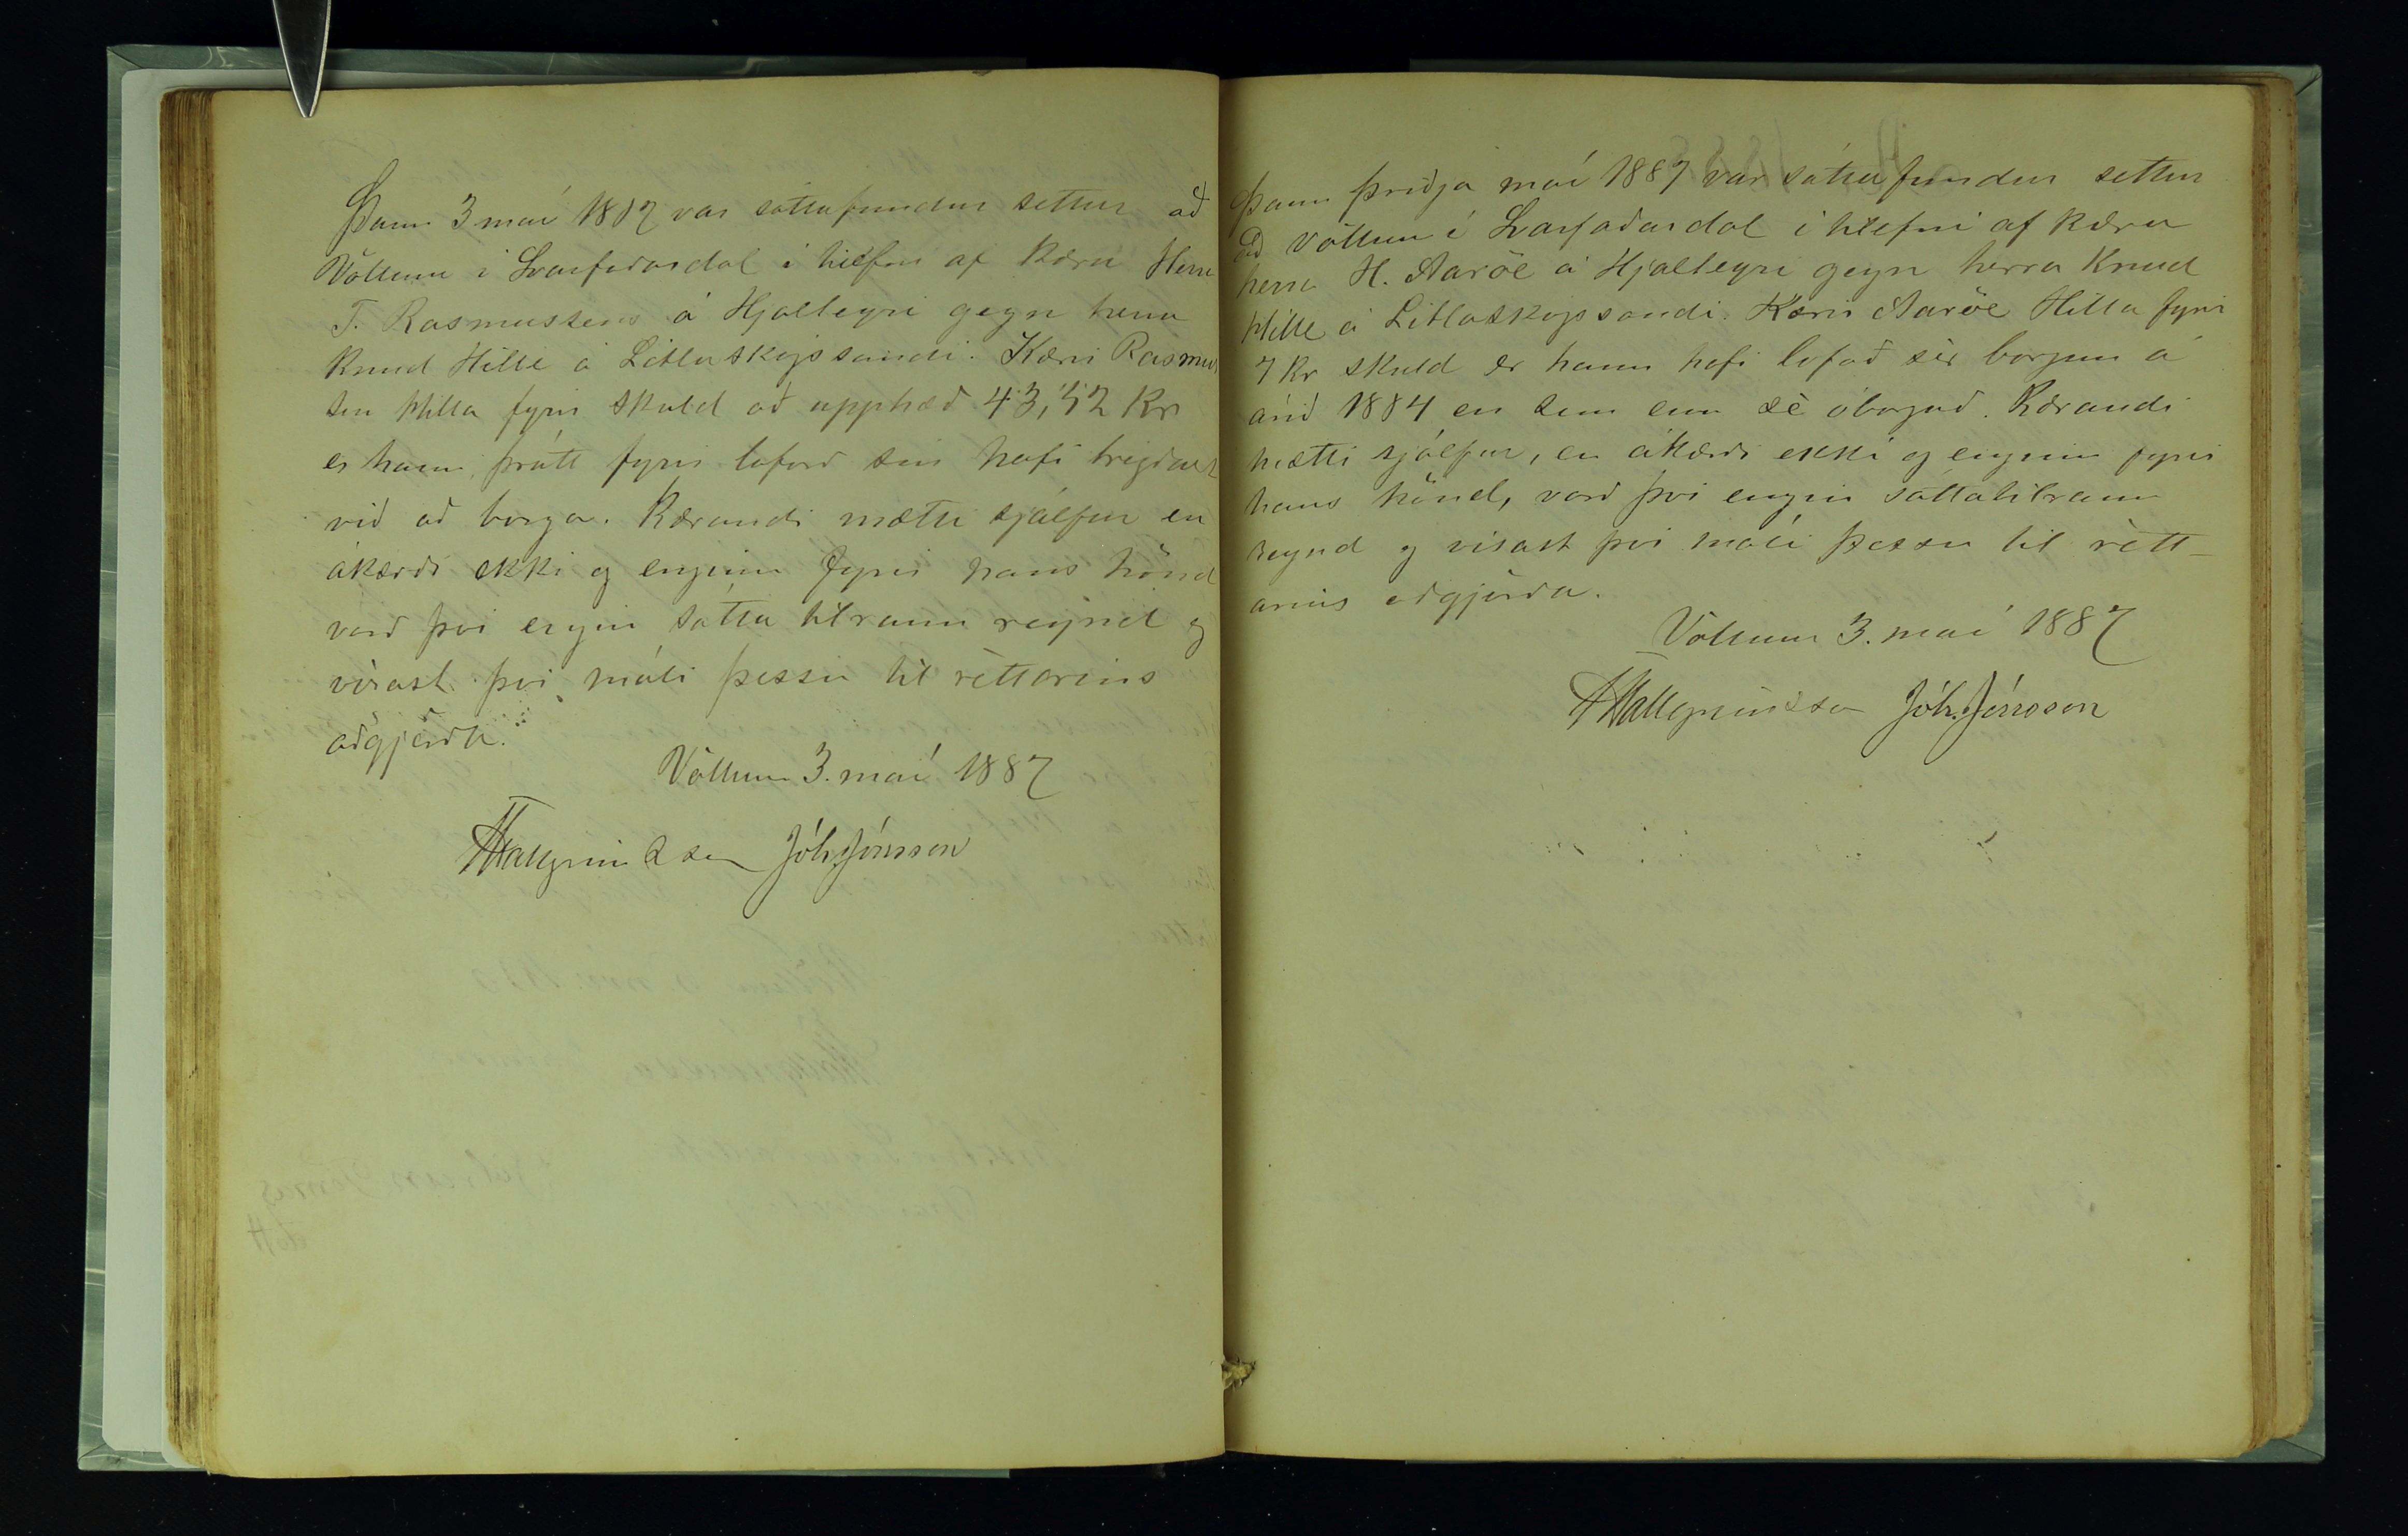 Þann 3 maí 1887 var sáttafundur settur að
Völlum í Svarfaðardal í tilefni af kæru Herra
T. Rasmussens á Hjalteyri gegn herra
Knud Hille á Litlaskógssandi. Kærir Rasmus
sen Hilla fyrir skuld að upphæð 43,52 Kr
er hann þrátt fyrir loforð sín hafi brigðast
við að borga. Kærandi mætti sjálfur en
ákærði ekki og enginn fyrir hans hönd
varð því engin sátta tilraun reynd og
vísast því máli þessu til réttarins
aðgjörða.
Völlum 3. maí 1887
Hallgrímsson Jóh. Jónsson
Þann þriðja maí 1887 var sáttafundur settur
að Völlum í Svarfaðardal í tilefni af kæru
herra H. Aaröe á Hjalteyri gegn herra Knud
Hille á Litlaskógssandi. Kærir Aaröe Hilla fyrir
7 kr skuld er hann hafi lofað sér borgun á
árið 1884 en sem enn sè óborguð. Kærandi
mætti sjálfur, en ákærði ekki og enginn fyrir
hans hönd, varð því engin sáttatilraun
reynd og vísast því máli þessu til rètt-
arins aðgjörða.
Völlum 3. maí 1887
Hallgrímsson Jóh. Jónsson